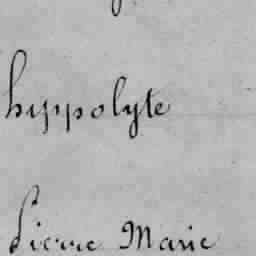 hyppolyte
Pierre Marie